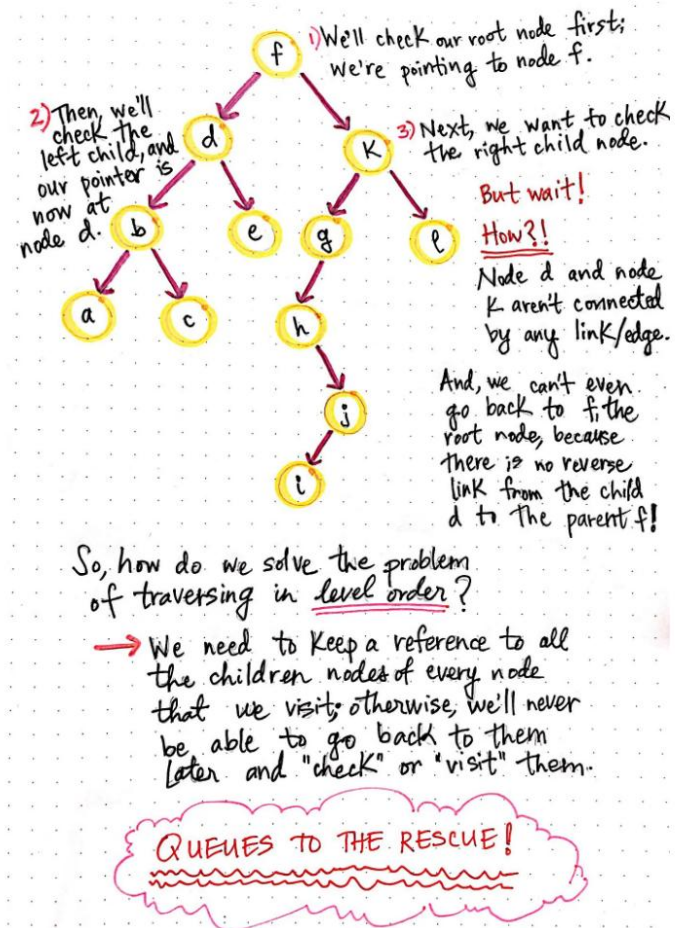 f
1) We'll check our root node first;
we're pointing to node f.
2) Then, we'll
check the
left child, and
our pointer is
now at
node d.
d
K
3) Next, we want to check
the right child node.
But wait!
How?!
Node d and node
K aren't connected
by any link/edge.
And, we can't even
go back to f, the
root node, because
there is no reverse
link from the child
d to the parent f!
b
e
g
l
a
c
h
j
i
So, how do we solve the problem
of traversing in level order?
→ We need to keep a reference to all
the children nodes of every node
that we visit; otherwise, we'll never
be able to go back to them
later and "check" or "visit" them.
QUEUES TO THE RESCUE!